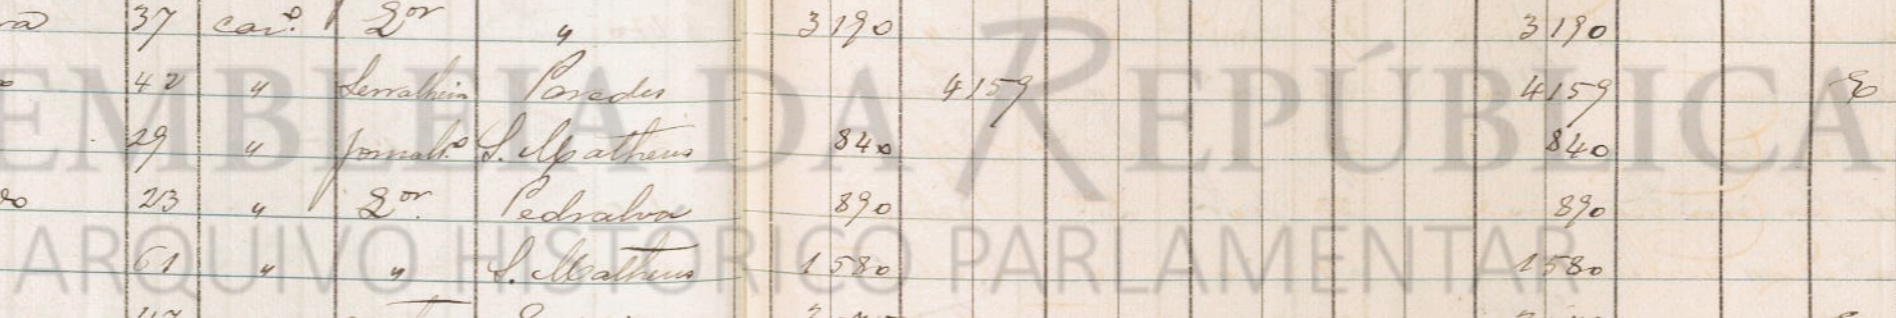 37 cas.º Lor " 3190 3190
42 " Serralheiro Paredes 4159 4159 E
29 " Jornalº S. Matheus 840 840
23 " Lor Pedralva 890 890
61 " " S. Matheus 1580 1580
ASSEMBLEIA DA REPÚBLICA
ARQUIVO HISTÓRICO PARLAMENTAR